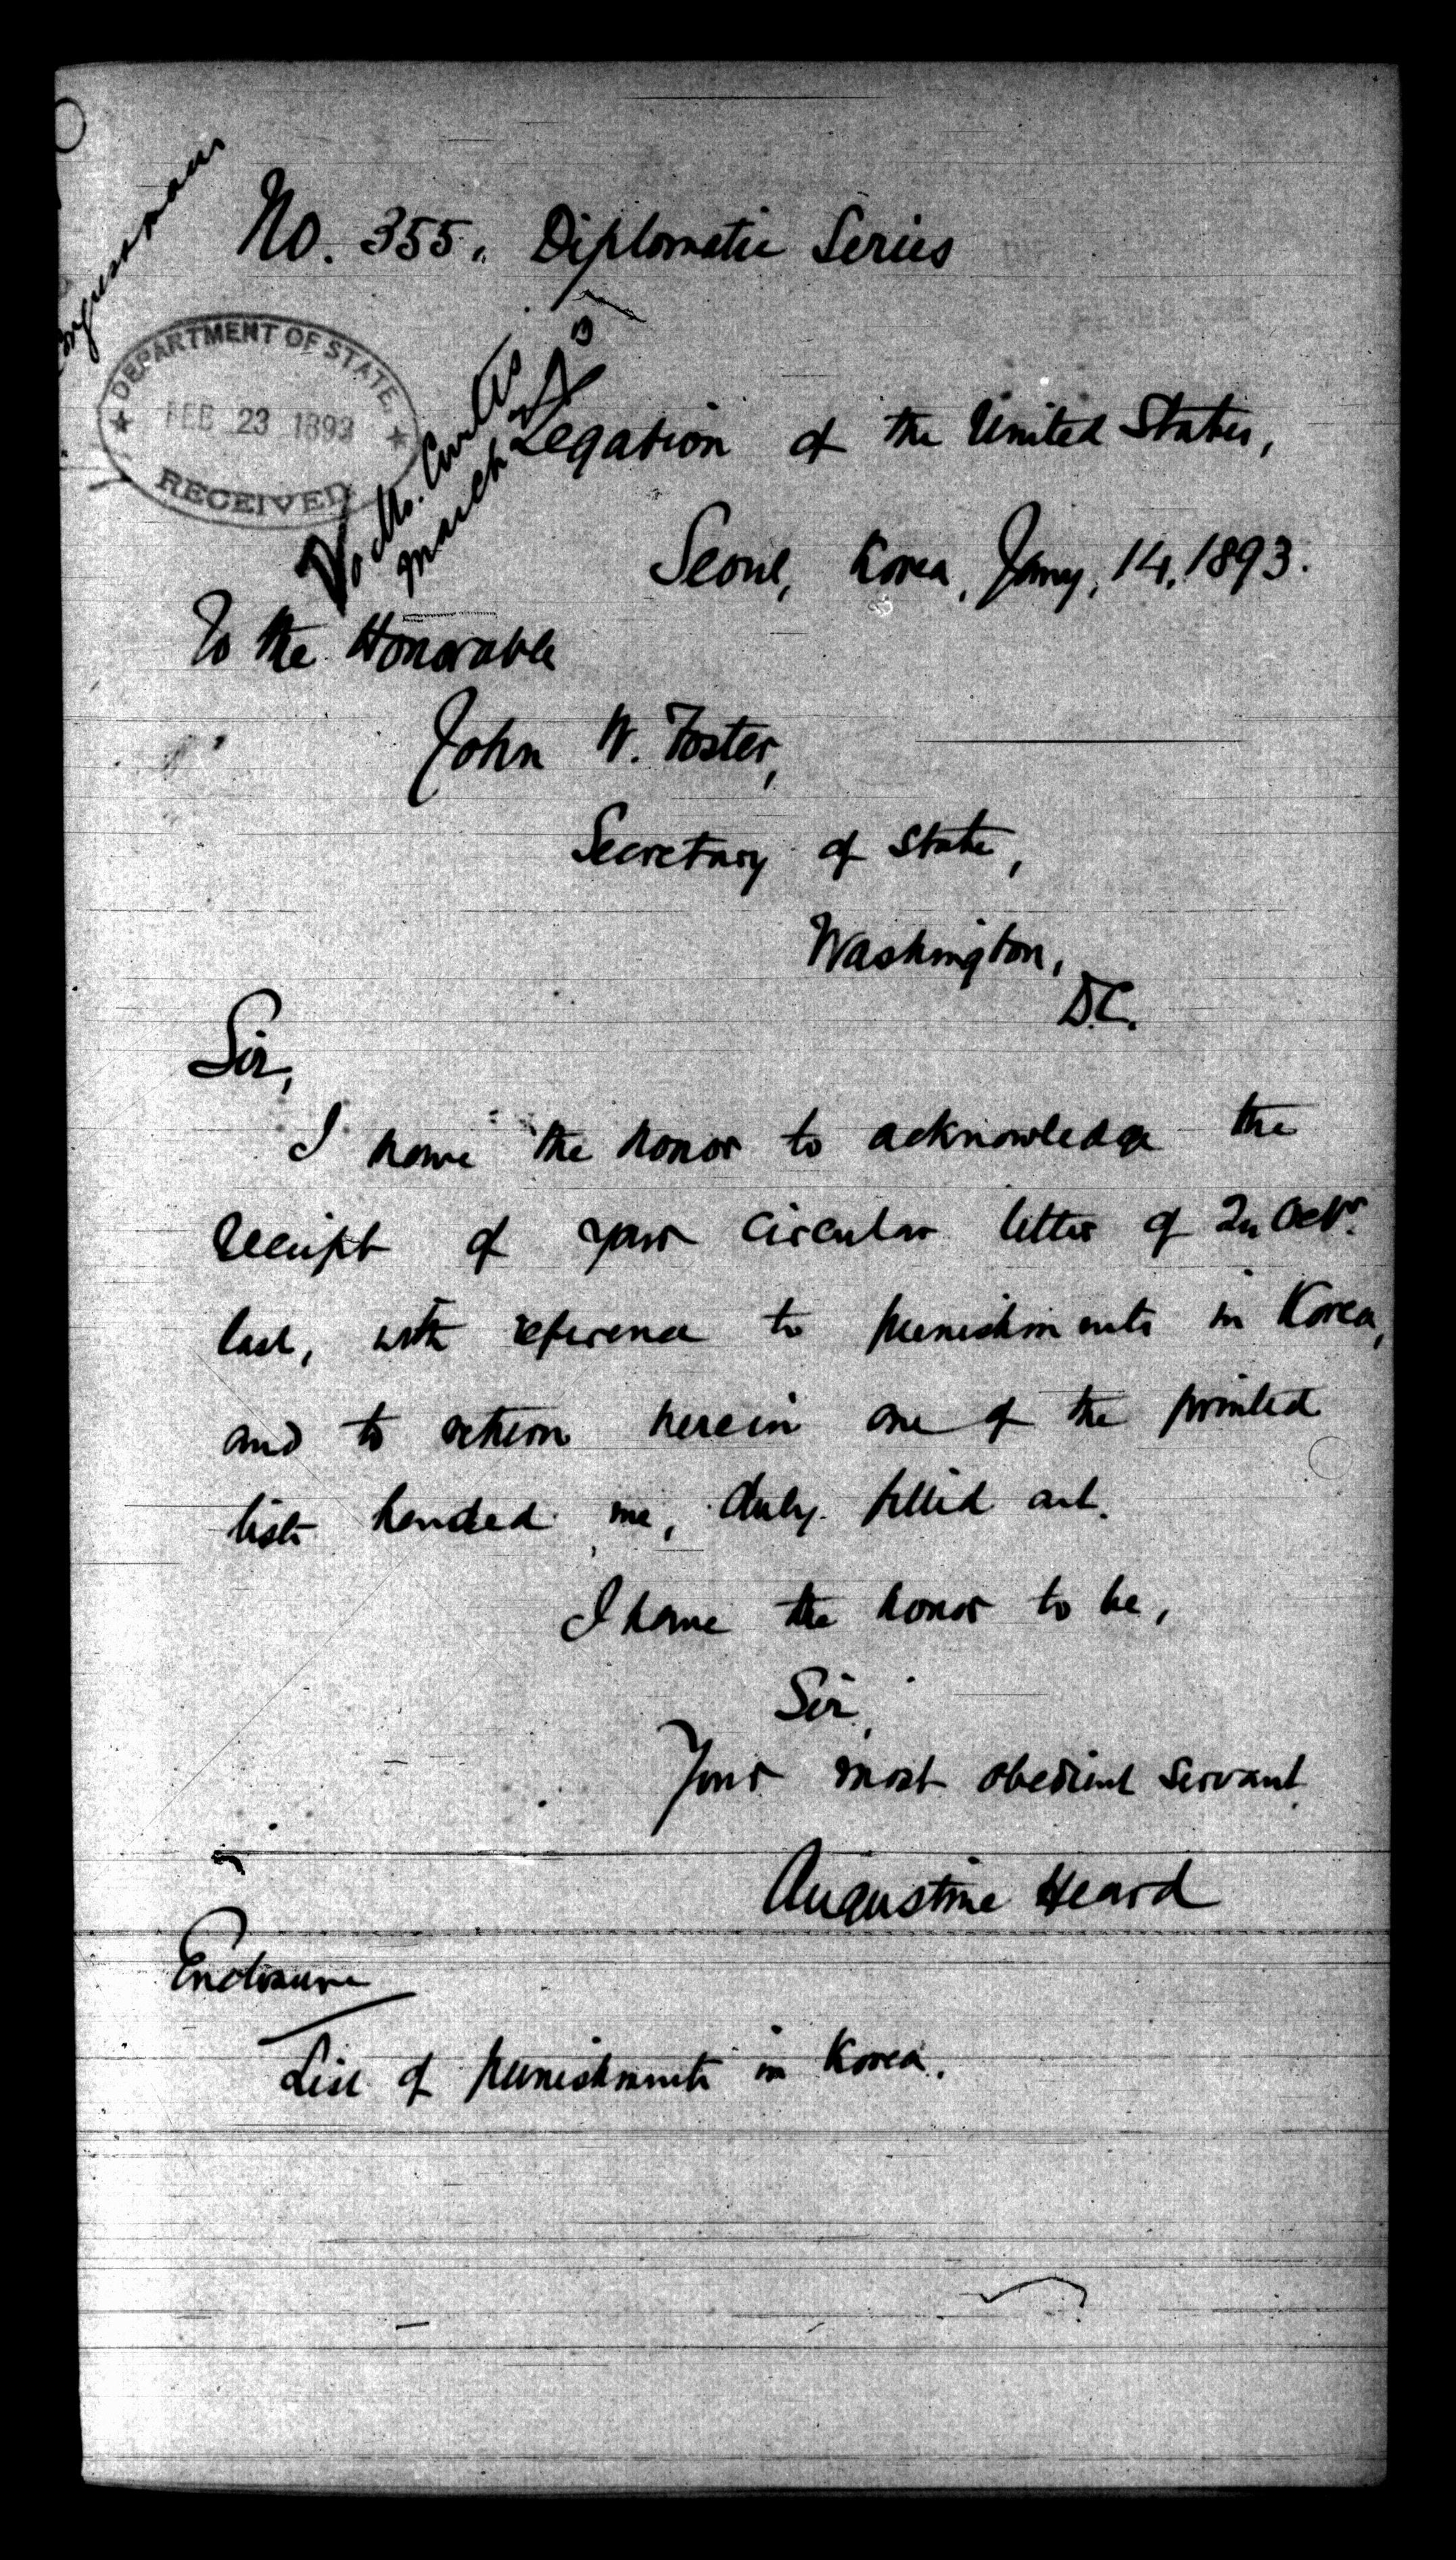 No. 355. Diplomatic Series
DEPARTMENT OF STATE.
FEB 23 1893
RECEIVED
To Mr. Curtis
March
Legation of the United States,
Seoul, Korea, Jany. 14. 1893.
To the Honorable
John W. Foster,
Secretary of State,
Washington,
D.C.
Sir,
I have the honor to acknowledge the
receipt of your circular letter of
last, with reference to punishments in Korea,
and to return herein one of the printed
lists handed me, duly filled out.
I have the honor to be,
Sir,
Your most obedient servant
Augustine Heard
Enclosure
List of punishments in Korea.